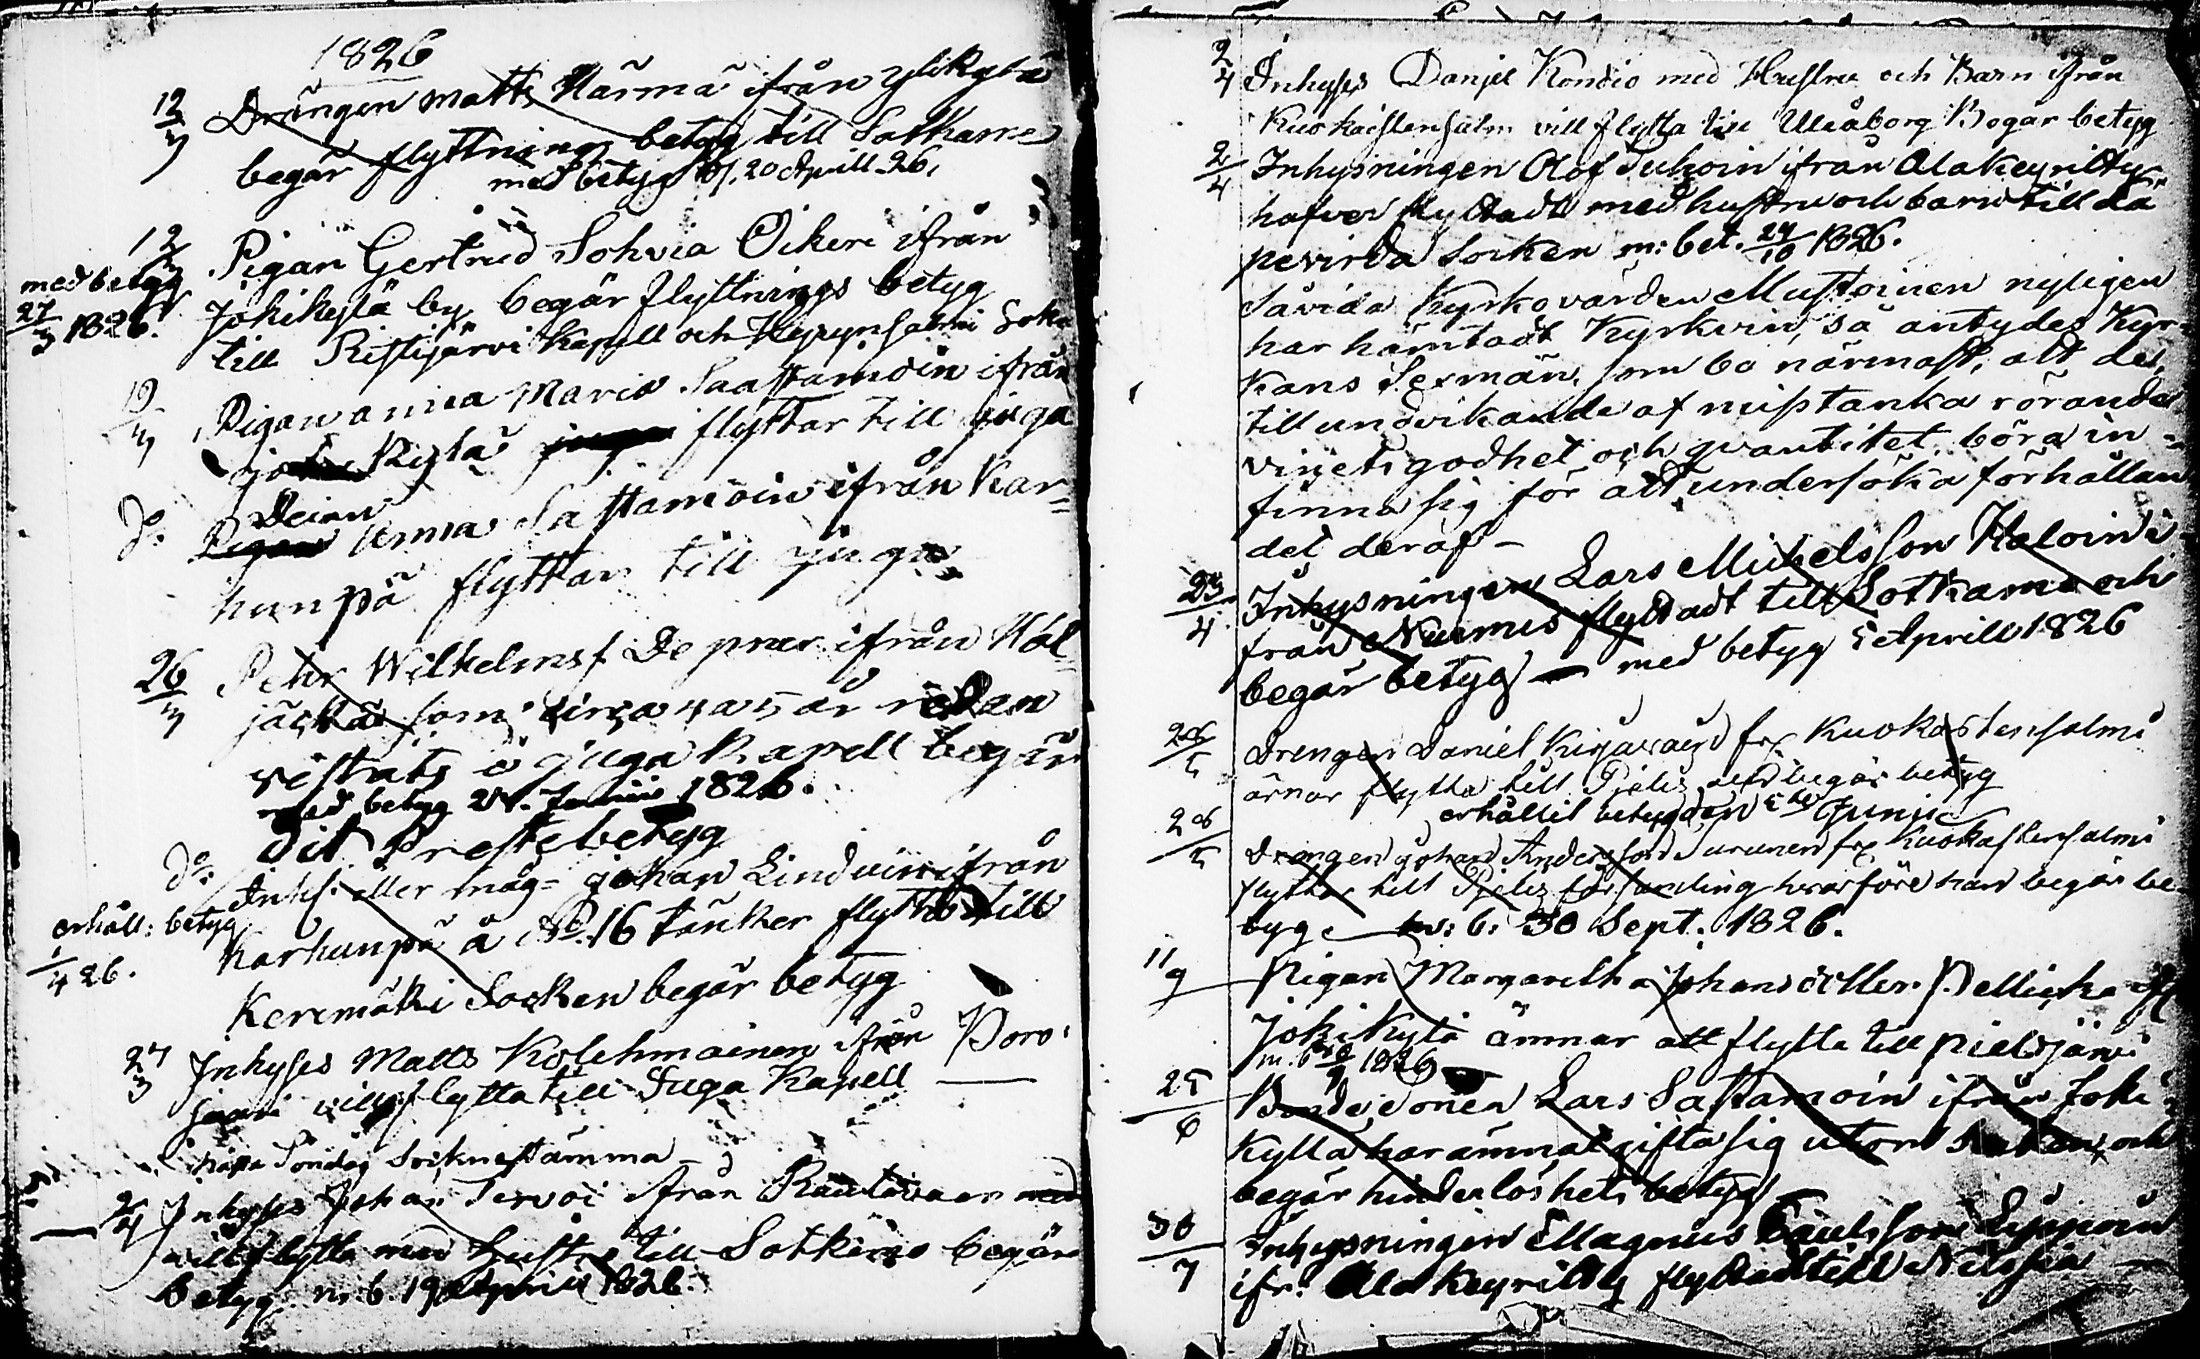 1826
12/3 Drängen Matts Härmä ifrån ylikylä
begär flyttnings betyg till Sotkamo
med betyg d. 20 Aprill 26.
12/3 Pigan Gertrud Sohvia Oikari ifrån
med betyg
27/3 1826.
Jokikylä by begär flyttnings betyg
till Ristijärvi Kapell och Hyrynsalmi Sokn
19/3 Pigan Anna Maria Saastamoin ifrån
joki Kylä flyttar till juga
do: Deian
Pigan Anna Sastamoin ifrån Kar=
hunpä flyttar till juga
26/3 Pehr Wilhelmss. De prær ifrån Hal=
jäckä som circa 4 a 5 år redan
vistats i juga Kapell begär
med betyg 24. Junii 1826.
dit Prestebetyg
do: Inhs: eller måg= johan Lindvin ifrån
erhåll: betyg
1/4 26.
Karhunpä å No. 16 tänker flytta till
Kerimäki Socken begär betyg
27/3 Inhyses Matts Kolehmainen ifrån Poro
saari vill flytta till Juga Kapell
hålla Söndag Socknestämma
2/4 Inhyses Johan Tervoi ifrån Rautavaara med
vill flytta med Hustru till Sotkamo begär
betyg m. b. 19 Aprill 1826.
2/4 Inhyses Daniel Kondio med Hustru och Barn ifrån
Kuokastensalmi vill flytta till Uleåborg Begär betyg
2/4 Inhysningen Olof Juhoin ifrån Alakeyritty
hafver flyttadt med hustru och barn till La
pevirda Socken m: bet. 24/10 1826.
Såvida Kyrkovärden Mustoinen nyligen
har hämtadt Kyrkvin, så antydes Kyr=
kans Sexmän, som bo närmast, att de,
till undvikande af misstanka rörande
vinets godhet och qvantitet böra in=
finna sig för att undersöka förhållan
det deraf –
23/4 Inhysningen Lars Michelsson Haloin i
från Nurmis flyttadt till Sotkamo och
begär betyg – med betyg 5 Aprill 1826
28/5 Drengen Daniel Kirjavain fr. Kuokastensalmi
ärnar flytta till Pjelis och begär betyg
erhållit betyg den 5te Junii
28/5 Drengen Johan Andersson Surunen fr. Kuokastensalmi
flyttar till Pjelis församling hvarföre han begär be
tyg m: b: 30 Sept. 1826.
11/9 Pigan Margaretha Johansdotter Pellicka if
Jokikylä ämnar att flytta till pielisjärvi
m. b. 1826
25/6 Bondesonen Lars Sastamoin ifrån Joki
Kylla har ämnat gifta sig utom socknen och
begär hinderlöshets betyg
30/7 Inhysningen Magnus Paulsson Lipponin
ifr. Alakeyritty flyttadt till Nilssiä